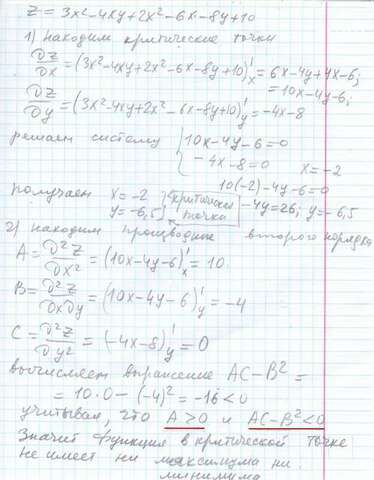 z = 3x²-4xy+2x²-6x-8y+10
1) находим критические точки
∂z/∂x = (3x²-4xy+2x²-6x-8y+10)'x = 6x-4y+4x-6;
= 10x-4y-6;
∂z/∂y = (3x²-4xy+2x²-6x-8y+10)'y = -4x-8
решаем систему { 10x-4y-6=0
-4x-8=0 x=-2
10(-2)-4y-6=0
получаем x=-2 критическая -4y=26; y=-6,5
y=-6,5 точка
2) находим производные второго порядка
A = ∂²z/∂x² = (10x-4y-6)'x = 10
B = ∂²z/∂x∂y = (10x-4y-6)'y = -4
C = ∂²z/∂y² = (-4x-8)'y = 0
вычисляем выражение AC-B² =
= 10·0-(-4)² = -16<0
учитывая, что A>0 и AC-B²<0
Значит функция в критической точке
не имеет ни максимума ни
минимума